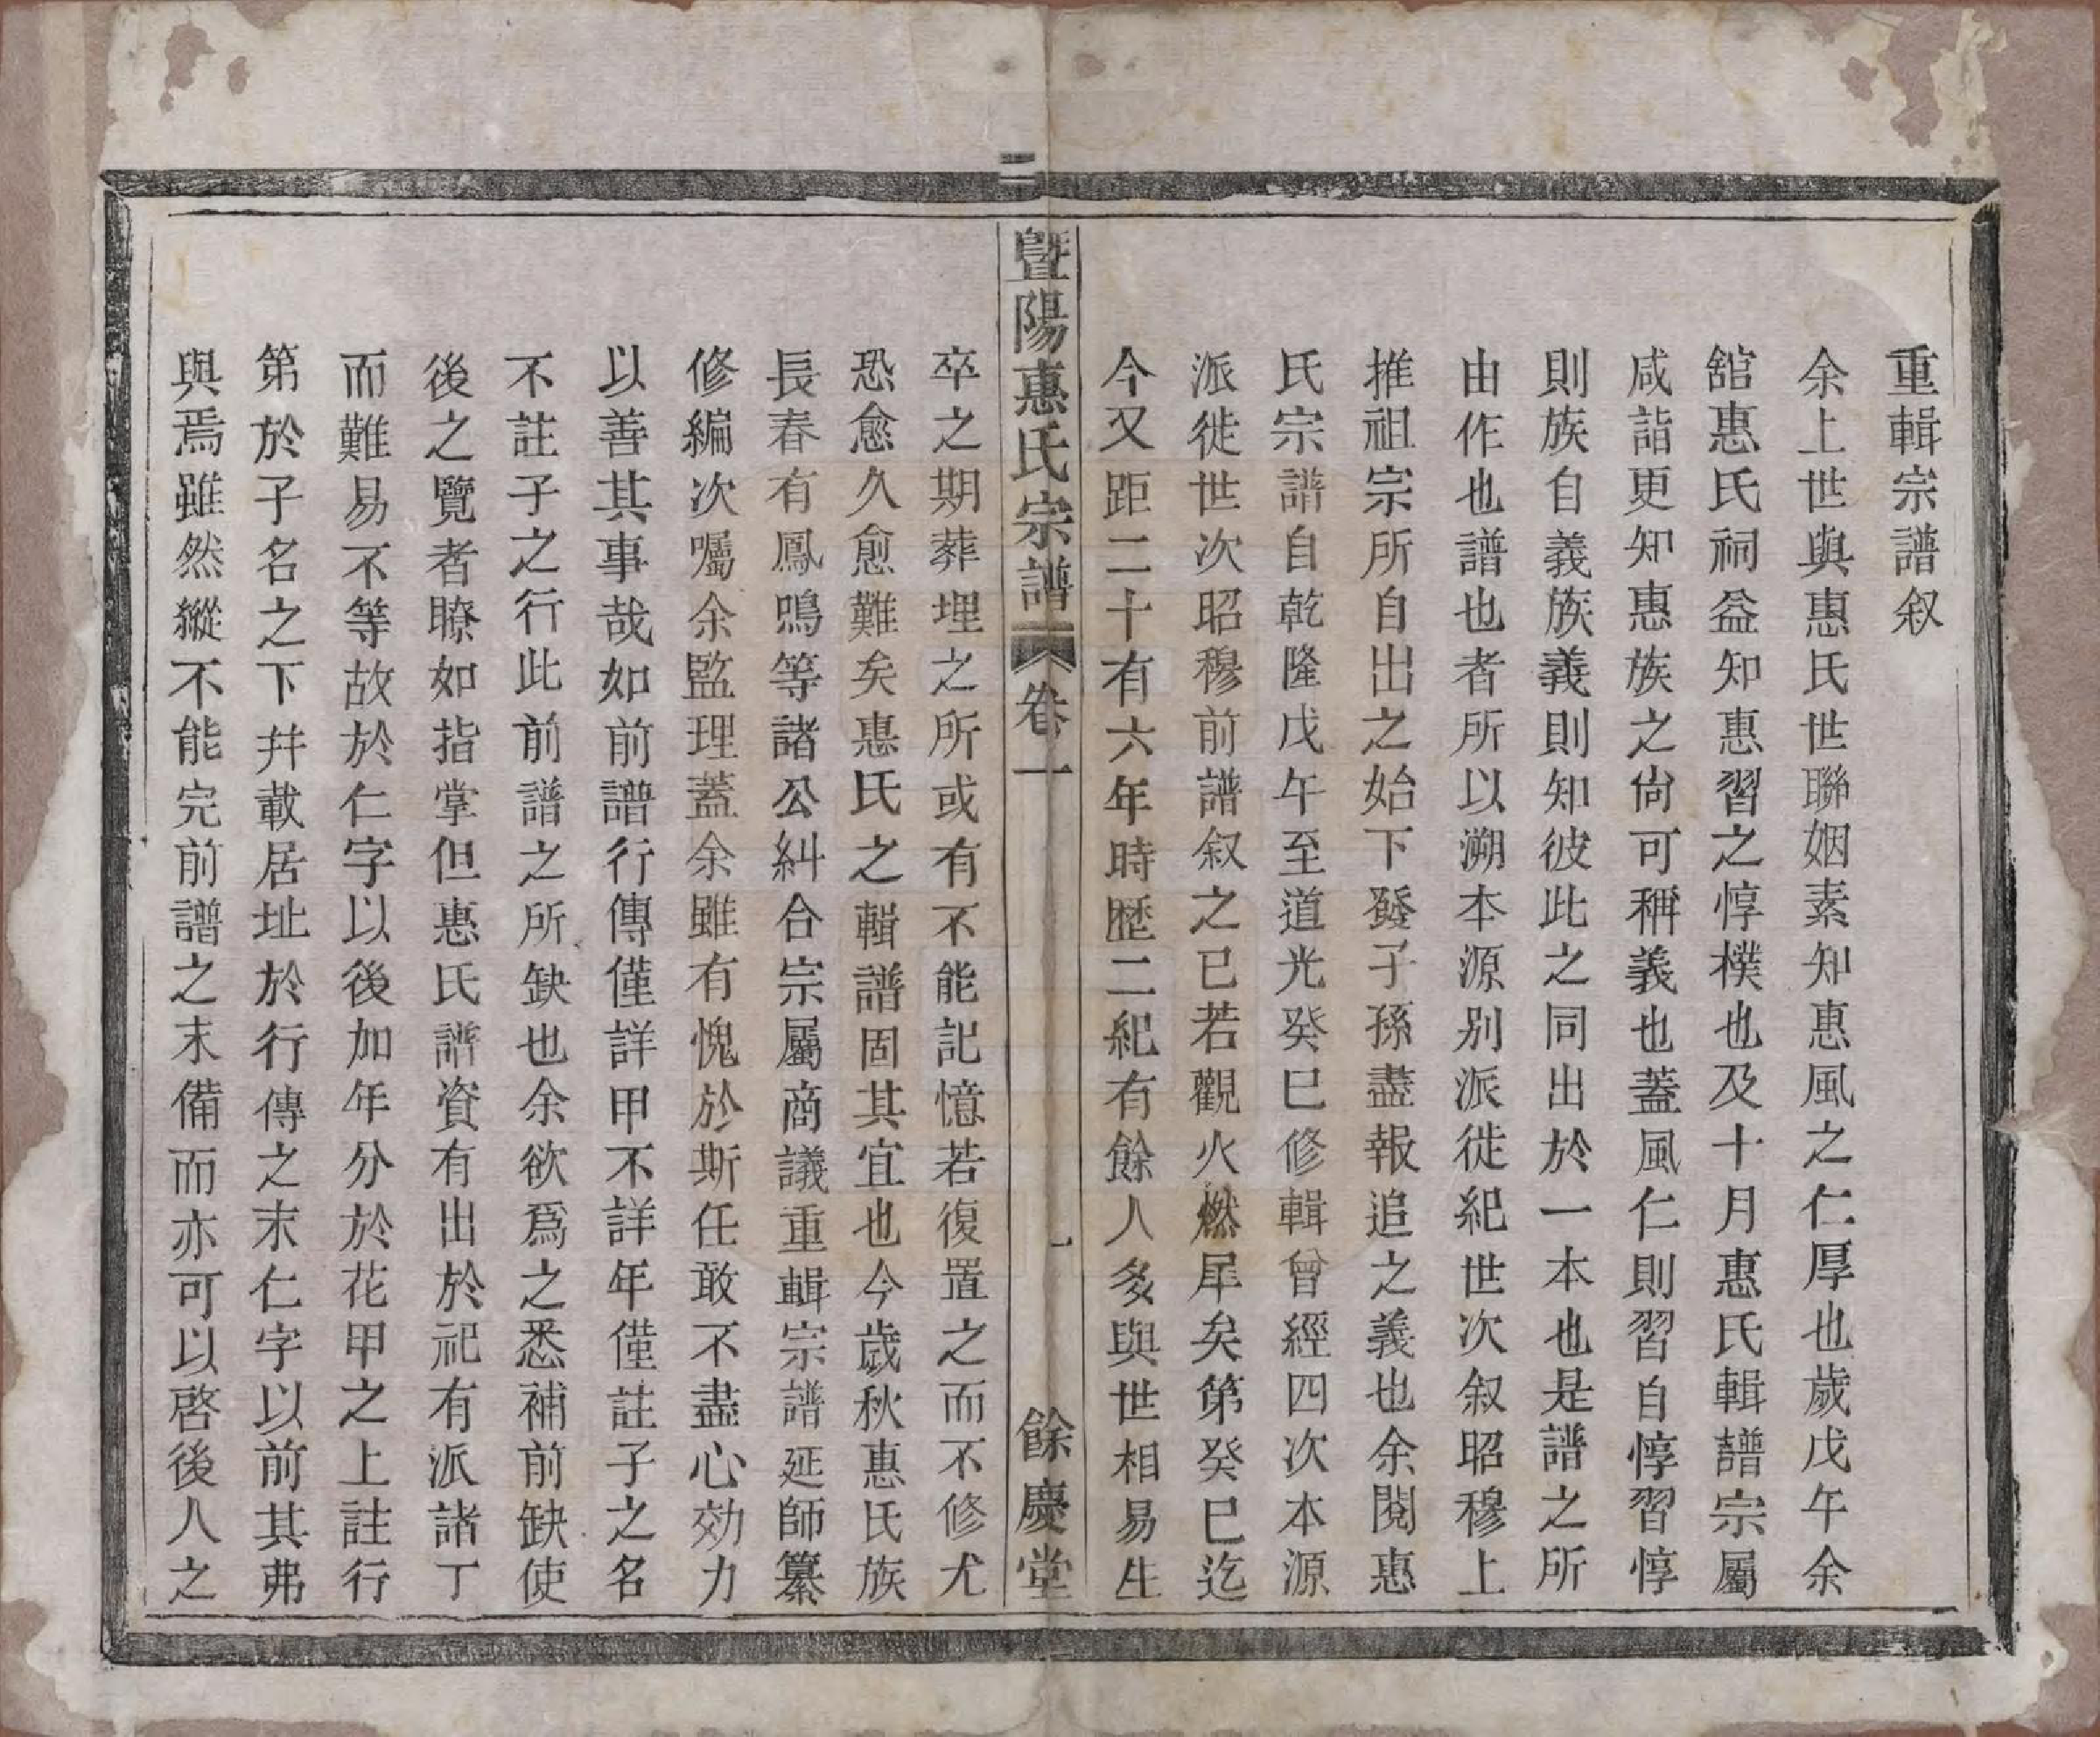 重輯宗譜叙
余上世與惠氏世聯姻素知惠風之仁厚也歲戊午余
舘惠氏祠益知惠習之惇樸也及十月惠氏輯譜宗屬
咸詣更知惠族之尙可稱義也蓋風仁則習自惇習惇
則族自義族義則知彼此之同出於一本也是譜之所
由作也譜也者所以溯本源别派徙紀世次叙昭穆上
推祖宗所自出之始下發子孫盡報追之義也余閱惠
氏宗譜自乾隆戊午至道光癸巳修輯曾經四次本源
派徙世次昭穆前譜叙之已若觀火燃犀矣第癸巳迄
今又距二十有六年時歷二紀有餘人多與世相易生
暨陽惠氏宗譜 卷一 一 餘慶堂
卒之期葬埋之所或有不能記憶若復置之而不修尤
恐愈久愈難矣惠氏之輯譜固其宜也今歲秋惠氏族
長春有鳳鳴等諸公糾合宗屬商議重輯宗譜延師纂
修編次囑余監理蓋余雖有愧於斯任敢不盡心効力
以善其事哉如前譜行傳僅詳甲不詳年僅註子之名
不註子之行此前譜之所缺也余欲爲之悉補前缺使
後之覽者瞭如指掌但惠氏譜資有出於祀有派諸丁
而難易不等故於仁字以後加年分於花甲之上註行
第於子名之下幷載居址於行傳之末仁字以前其弗
與焉雖然縱不能完前譜之末備而亦可以啓後人之